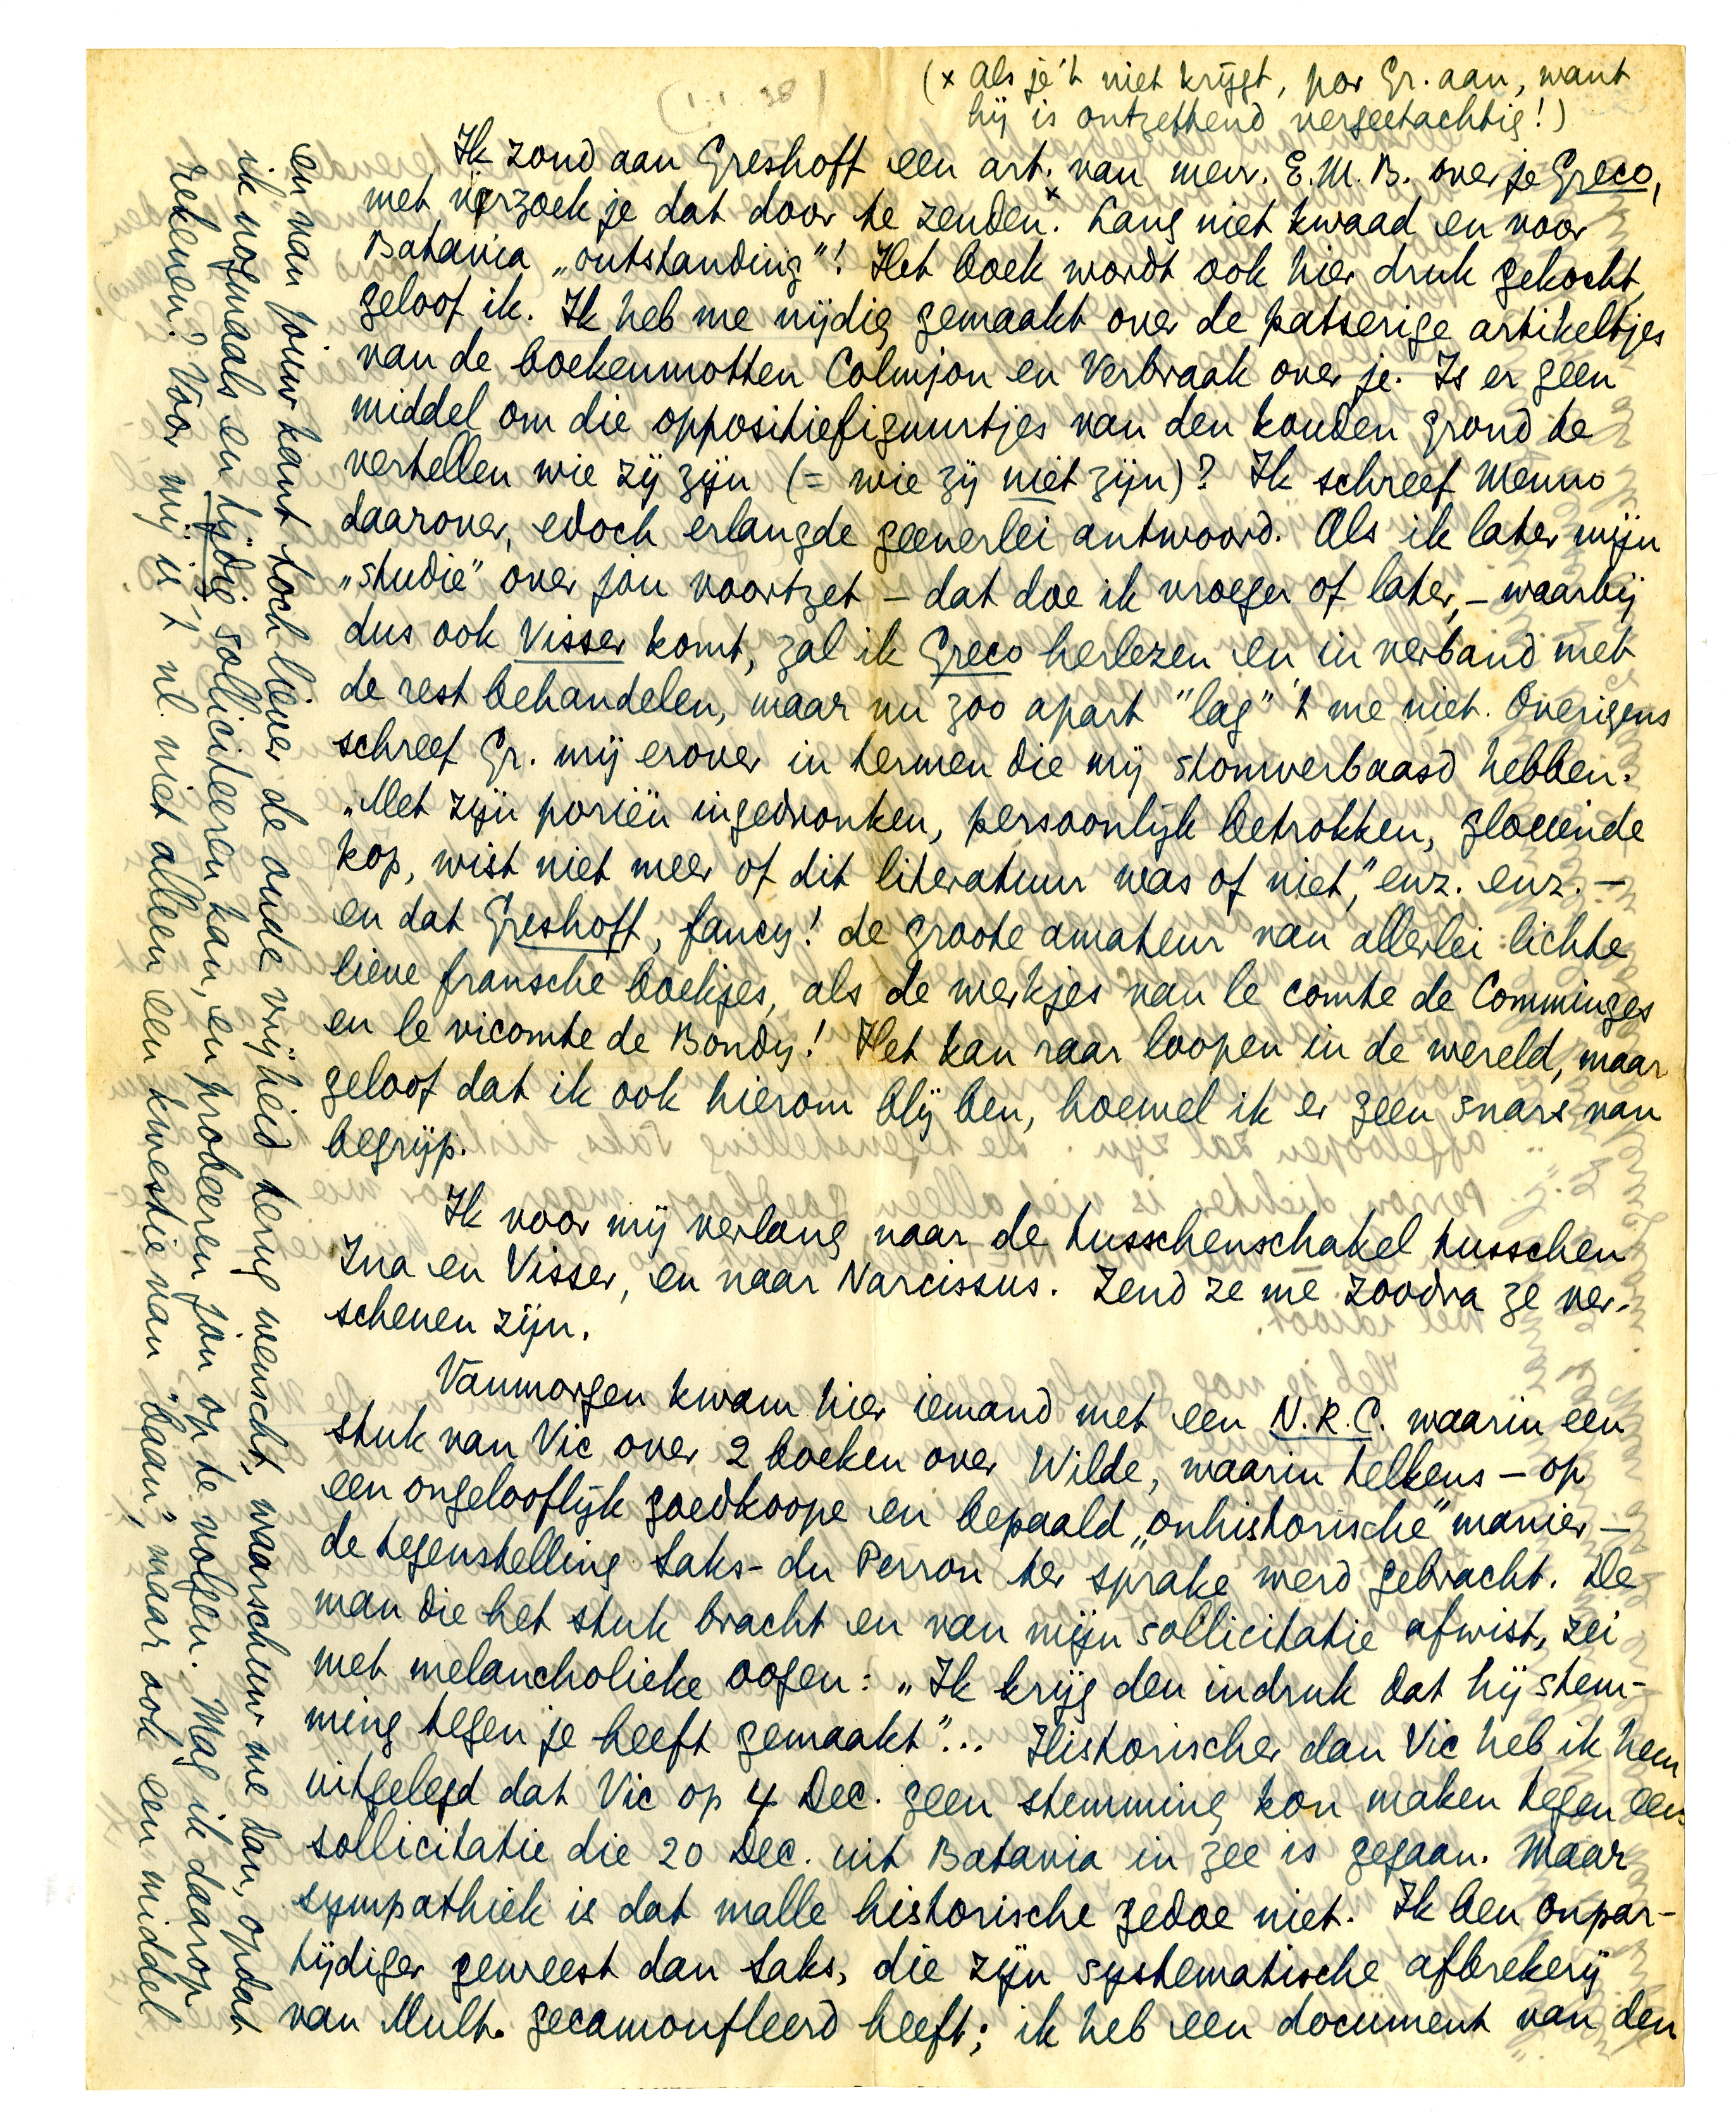 (1.1.38)
(x Als je 't niet krijgt, por Gr. aan, want
hij is ontzettend vergeetachtig!)
Ik zond aan Greshoff een art. van mevr. E.M.B. over je Greco,
met verzoek je dat door te zenden.x Lang niet kwaad en voor
Batavia „outstanding"! Het boek wordt ook hier druk gekocht,
geloof ik. Ik heb me nijdig gemaakt over de patserige artikeltjes
van de boekenmotten Colmjon en Verbraak over je. Is er geen
middel om die oppositiefiguurtjes van den kouden grond te
vertellen wie zij zijn (= wie zij niet zijn)? Ik schreef Menno
daarover, edoch erlangde geenerlei antwoord. Als ik later mijn
„studie" over jou voortzet – dat doe ik vroeger of later, – waarbij
dus ook Visser komt, zal ik Greco herlezen en in verband met
de rest behandelen, maar nu zoo apart "lag" 't me niet. Overigens
schreef Gr. mij erover in termen die mij stomverbaasd hebben.
„Met zijn poriën ingedronken, persoonlijk betrokken, gloeiende
kop, wist niet meer of dit literatuur was of niet," enz. enz. –
en dat Greshoff, fancy! de groote amateur van allerlei lichte
lieve fransche boekjes, als de werkjes van le comte de Comminges
en le vicomte de Bondy! Het kan raar loopen in de wereld, maar
geloof dat ik ook hierom blij ben, hoewel ik er geen snars van
begrijp.
Ik voor mij verlang naar de tusschenschakel tusschen
Ina en Visser, en naar Narcissus. Zend ze me zoodra ze ver-
schenen zijn.
Vanmorgen kwam hier iemand met een N.R.C. waarin een
stuk van Vic over 2 boeken over Wilde, waarin telkens – op
een ongelooflijk goedkoope en bepaald „onhistorische" manier –
de tegenstelling Saks- du Perron ter sprake werd gebracht. De
man die het stuk bracht en van mijn sollicitatie afwist, zei
met melancholieke oogen: „Ik krijg den indruk dat hij stem-
ming tegen je heeft gemaakt"... Historischer dan Vic heb ik hem
uitgelegd dat Vic op 4 Dec. geen stemming kon maken tegen een
sollicitatie die 20 Dec. uit Batavia in zee is gegaan. Maar
sympathiek is dat malle historische gedoe niet. Ik ben onpar-
tijdiger geweest dan Saks, die zijn systematische afbrekerij
van Mult. gecamoufleerd heeft; ik heb een document van den
en van jouw kant toch liever de oude vrijheid terug wenscht, waarschuw me dan, opdat
ik nogmaals en tijdig solliciteeren kan, en probeeren jou op te volgen. Mag ik daarop
rekenen? Voor mij is 't nl. niet alleen een kwestie van "baan", maar ook een middel